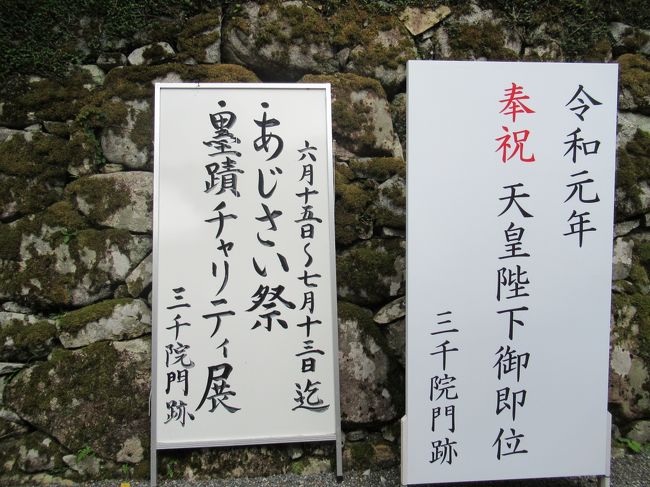 六月十五日～七月十三日迄
・あじさい祭
・墨蹟チャリティ展
三千院門跡
令和元年
奉祝 天皇陛下御即位
三千院門跡